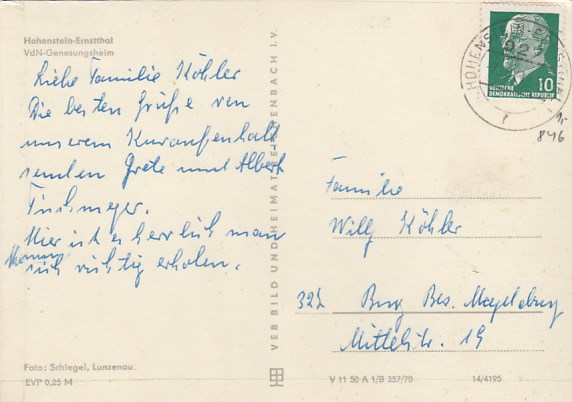 Hohenstein-Ernstthal
VdN-Genesungsheim
Liebe Familie Köhler
Die besten Grüße von
unserem Kuraufenthalt
senden Grete und Albert
Tuchmeyer.
Hier ist es herrlich man
kann sich richtig erholen.
Foto: Schlegel, Lunzenau.
EVP 0,25 M
VEB BILD UND HEIMAT REICHENBACH I.V.
10
DEUTSCHE
DEMOKRATISCHE REPUBLIK
846
Familie
Willy Köhler
Burg Bez. Magdeburg
Mittelstr. 19
V 11 50 A 1/B 357/70
14/4195